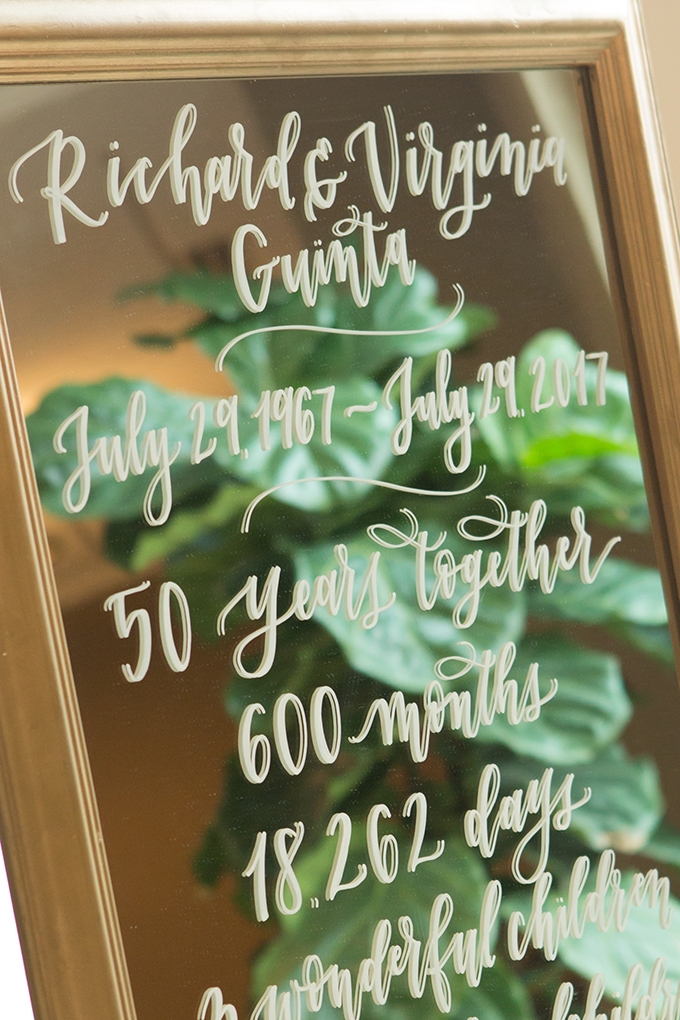 Richard & Virginia
Guinta
July 29, 1967 ~ July 29, 2017
50 years together
600 months
18,262 days
wonderful children